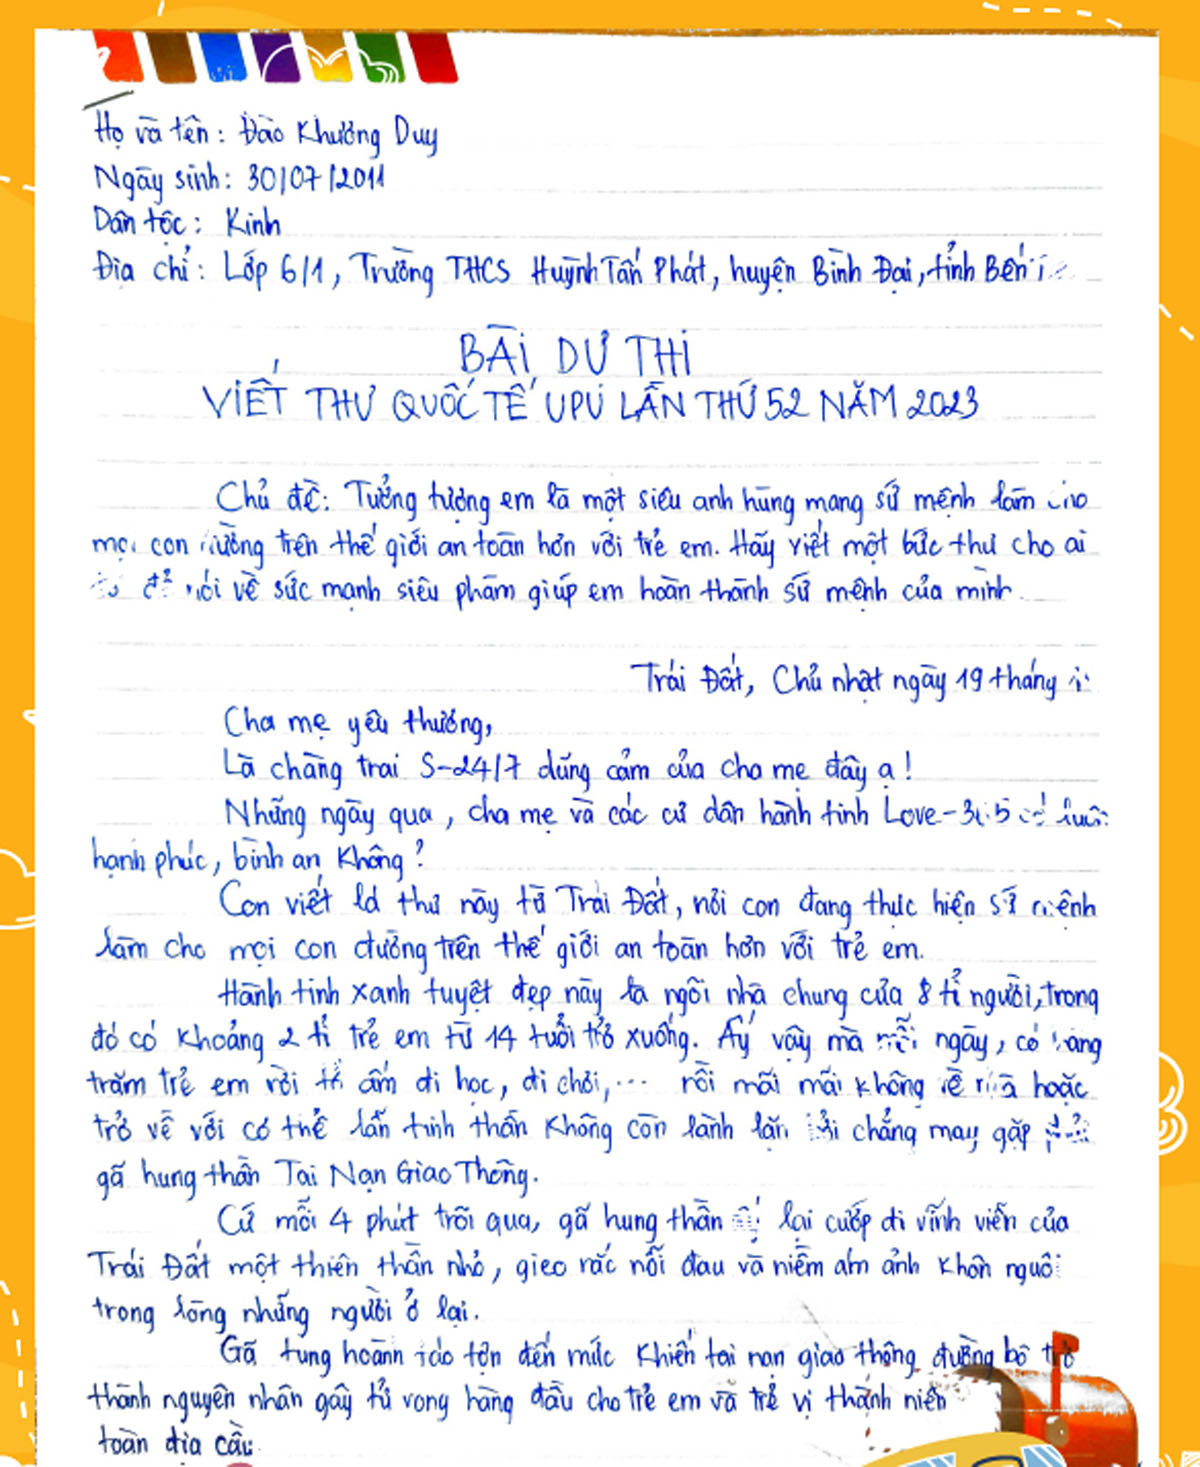 Họ và tên: Đào Khương Duy
Ngày sinh: 30/07/2011
Dân tộc: Kinh
Địa chỉ: Lớp 6/1, Trường THCS Huỳnh Tấn Phát, huyện Bình Đại, tỉnh Bến
BÀI DỰ THI
VIẾT THƯ QUỐC TẾ UPU LẦN THỨ 52 NĂM 2023
Chủ đề: Tưởng tượng em là một siêu anh hùng mang sứ mệnh làm cho
mọi con đường trên thế giới an toàn hơn với trẻ em. Hãy viết một bức thư cho ai
để nói về sức mạnh siêu phàm giúp em hoàn thành sứ mệnh của mình.
Trái Đất, Chủ nhật ngày 19 tháng
Cha mẹ yêu thương,
Là chàng trai S-24/7 dũng cảm của cha mẹ đây ạ!
Những ngày qua, cha mẹ và các cư dân hành tinh
hạnh phúc, bình an không?
Con viết lá thư này từ Trái Đất, nơi con đang thực hiện sứ mệnh
làm cho mọi con đường trên thế giới an toàn hơn với trẻ em.
Hành tinh xanh tuyệt đẹp này là ngôi nhà chung của 8 tỉ người, trong
đó có khoảng 2 tỉ trẻ em từ 14 tuổi trở xuống. Ấy vậy mà mỗi ngày, có hàng
trăm trẻ em rời tổ ấm đi học, đi chơi,... rồi mãi mãi không về nhà hoặc
trở về với cơ thể lẫn tinh thần không còn lành lặn bởi chẳng may gặp phải
gã hung thần Tai Nạn Giao Thông.
Cứ mỗi 4 phút trôi qua, gã hung thần ấy lại cướp đi vĩnh viễn của
Trái Đất một thiên thần nhỏ, gieo rắc nỗi đau và niềm ám ảnh khôn nguôi
trong lòng những người ở lại.
Gã tung hoành táo tợn đến mức khiến tai nạn giao thông đường bộ trở
thành nguyên nhân gây tử vong hàng đầu cho trẻ em và trẻ vị thành niên
toàn địa cầu